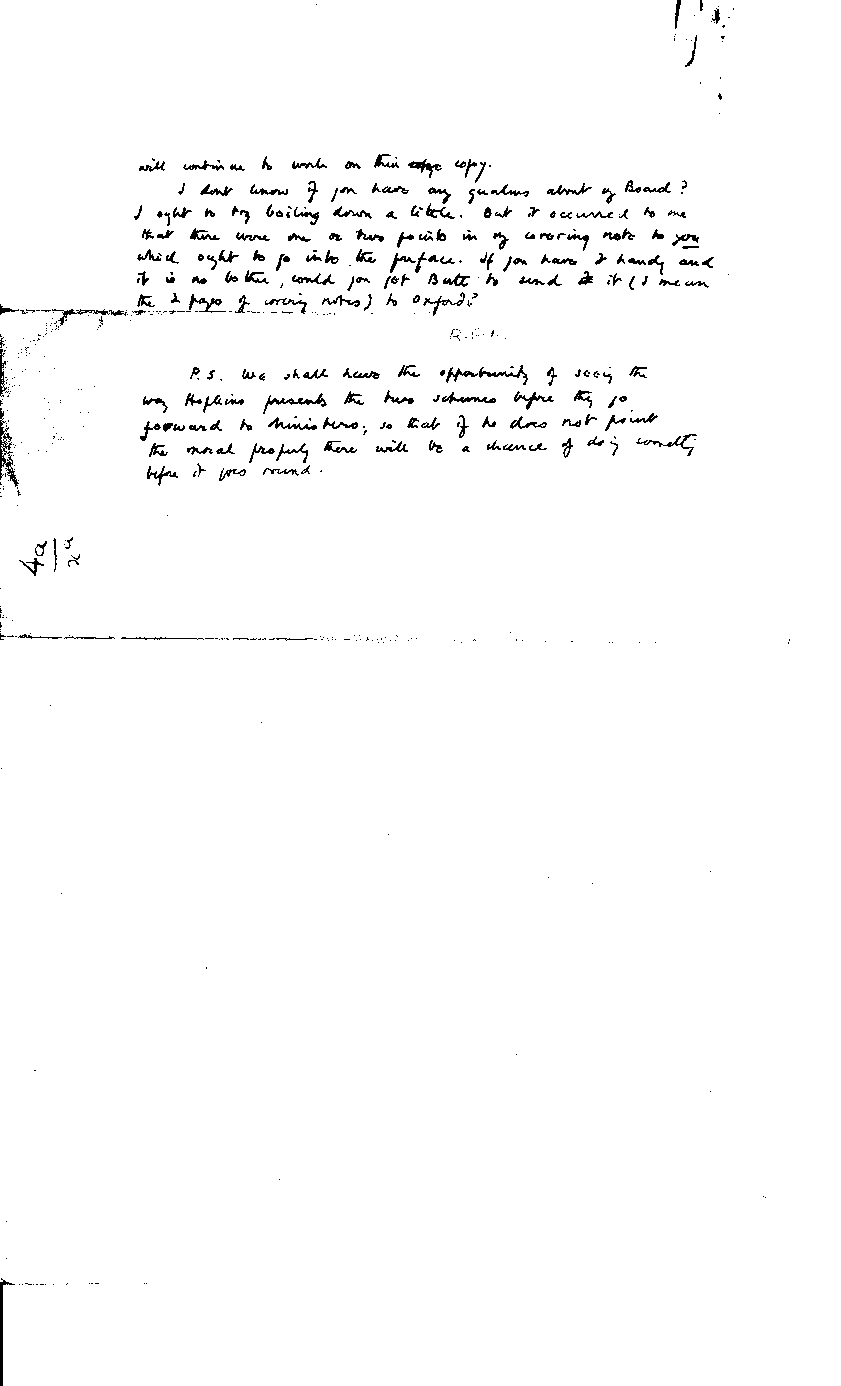 will continue to work on this copy.
I don't know if you have any qualms about my Board?
I ought to try boiling down a little. But it occurred to me
that there were one or two points in my covering note to you
which ought to go into the preface. If you have it handy and
it is no bother, would you get Butt to send it (I mean
the 2 pages of covering notes) to Oxford?
P.S. We shall have the opportunity of seeing the
way Hopkins presents the two schemes before they go
forward to Ministers; so that if he does not point
the moral properly there will be a chance of doing
before it goes round.
4a